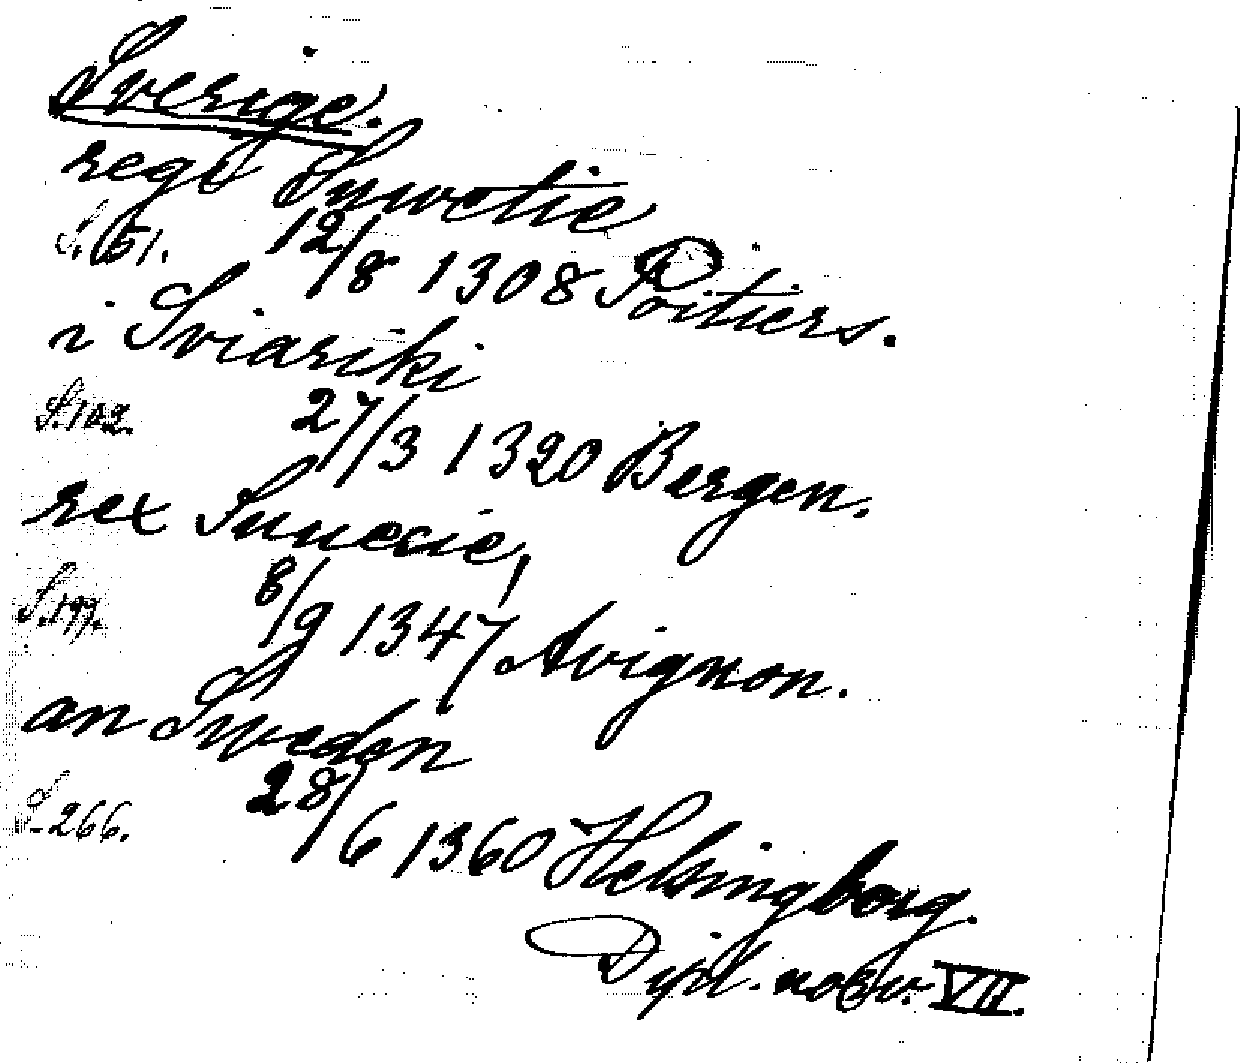 Sverige.
regi Suwetie
S. 51. 12/8 1308 Poitiers.
i Sviariki
S. 102. 27/3 1320 Bergen.
rex Suuecie,
S. 197. 8/9 1347 Avignon.
an Sweden
S. 266. 28/6 1360 Helsingborg.
Dipl. norv. VII.